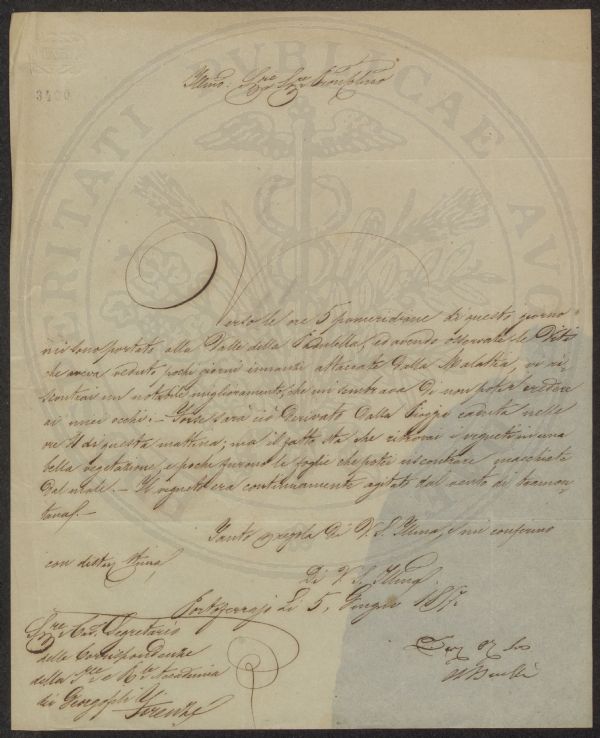 3400
Illmo. Sre Sre Pron Colmo
Verso le ore 5 pomeridiane di questo giorno
mi sono portato alla Valle della ed avendo osservate le Viti
che aveva veduto pochi giorni innanti attaccate dalla Malattia, vi ri-
scontrai un notabile miglioramento, che mi sembrava di non poter credere
ai miei occhi: — Forse sarà ciò derivato dalla Pioggia caduta nelle
ore 4 di questa mattina; ma il fatto sta che ritrovai i vigneti in una
bella vegetazione, e poche furono le foglie che potei riscontrare macchiate
dal male. — Il vigneto era continuamente agitato dal vento di tramon-
tana. —
Tanto a regola di V. S. Illma, e mi confermo
con distin stima,
Di V. S. Illma.
Portoferrajo Li 5, Giugno
Sre Segretario
delle Corrispondenze
della Accademia
dei Georgofili
Firenze
VERITATI PVBLICAE